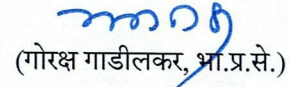 (गोरक्ष गाडीलकर, भा.प्र.से.)